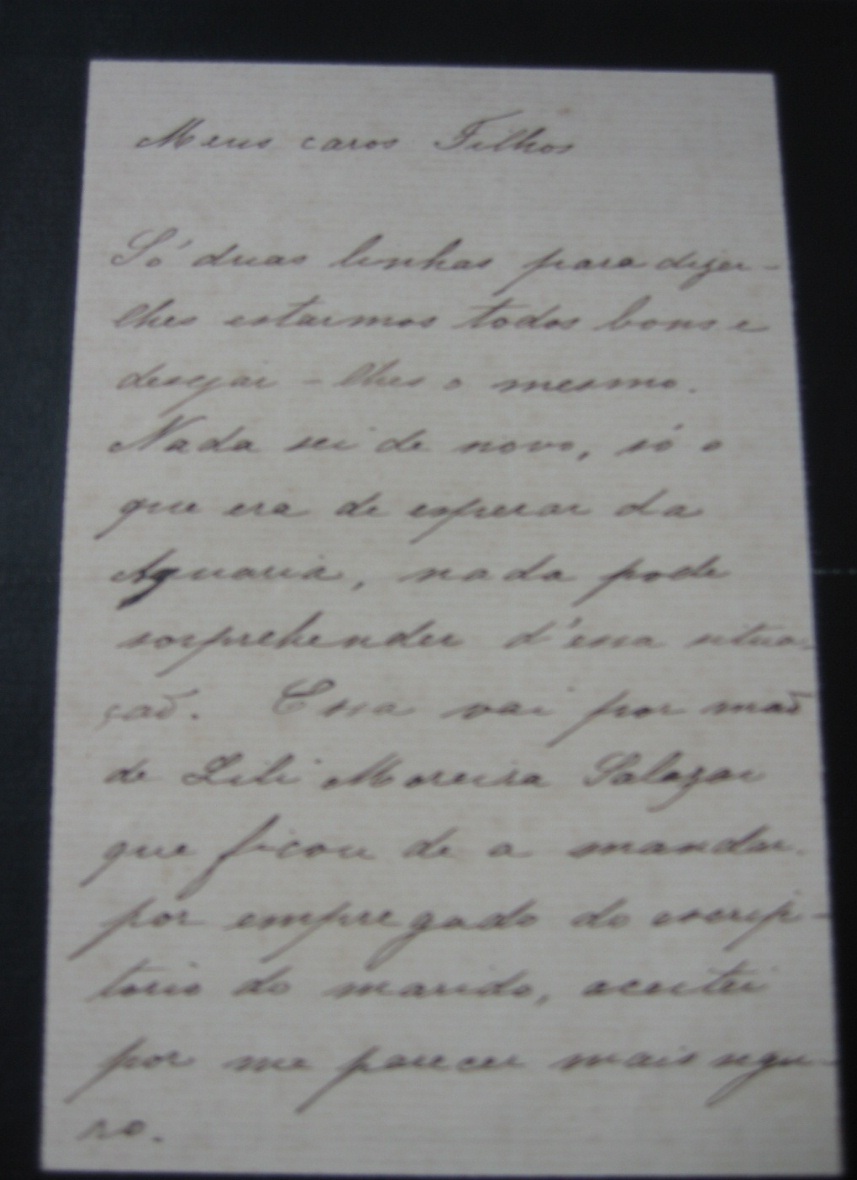 Meus caros Filhos
Só duas linhas para dizer-
lhes estarmos todos bons e
desejar-lhes o mesmo.
Nada sei de novo, só o
que era de esperar da
Aquaria, nada pode
sorprehender d'essa situa-
ção. Essa vai por mão
de Lili Moreira Salazar
que ficou de a mandar
por empregado do escrip-
torio do marido, aceitei
por me parecer mais segu-
ro.